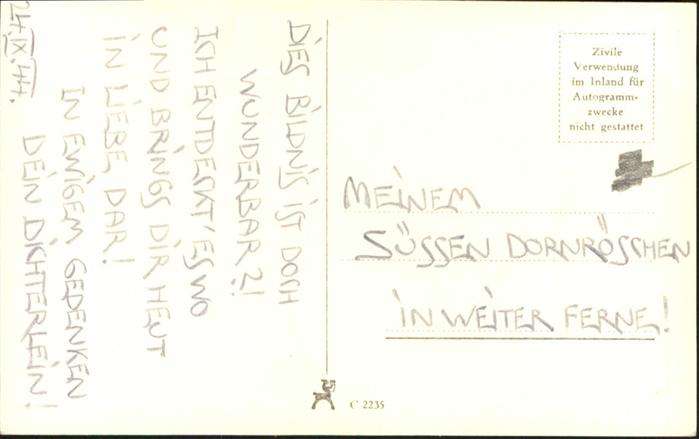 24.IX.44.
DIES BILDNIS IST DOCH
WUNDERBAR?!
ICH ENTDECKT' ES WO
UND BRINGS DIR HEUT
IN LIEBE DAR!
IN EWIGEM GEDENKEN
DEIN DICHTERLEIN!
Zivile
Verwendung
im Inland für
Autogramm-
zwecke
nicht gestattet
MEINEM
SÜSSEN DORNRÖSCHEN
IN WEITER FERNE!
C 2235